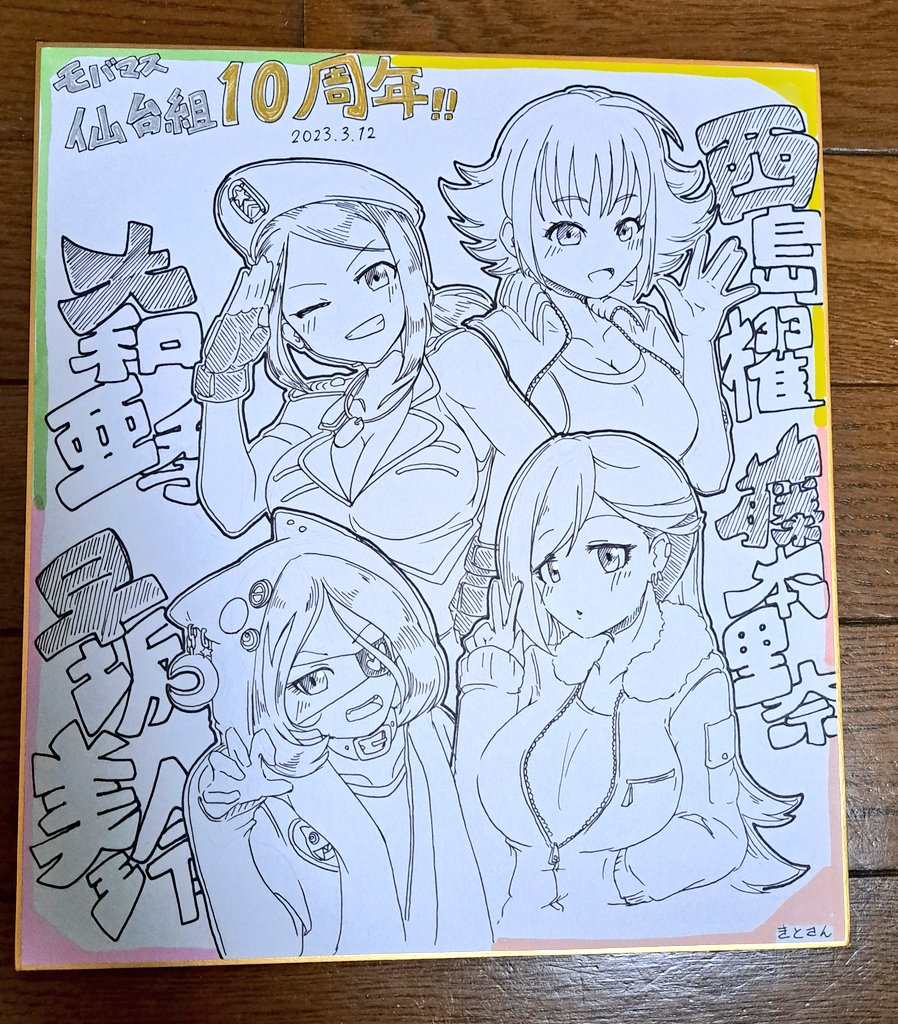 モバマス
仙台組10周年!!
2023.3.12
大和亜季
西島櫂
早坂美玲
藤本里奈
きとさん